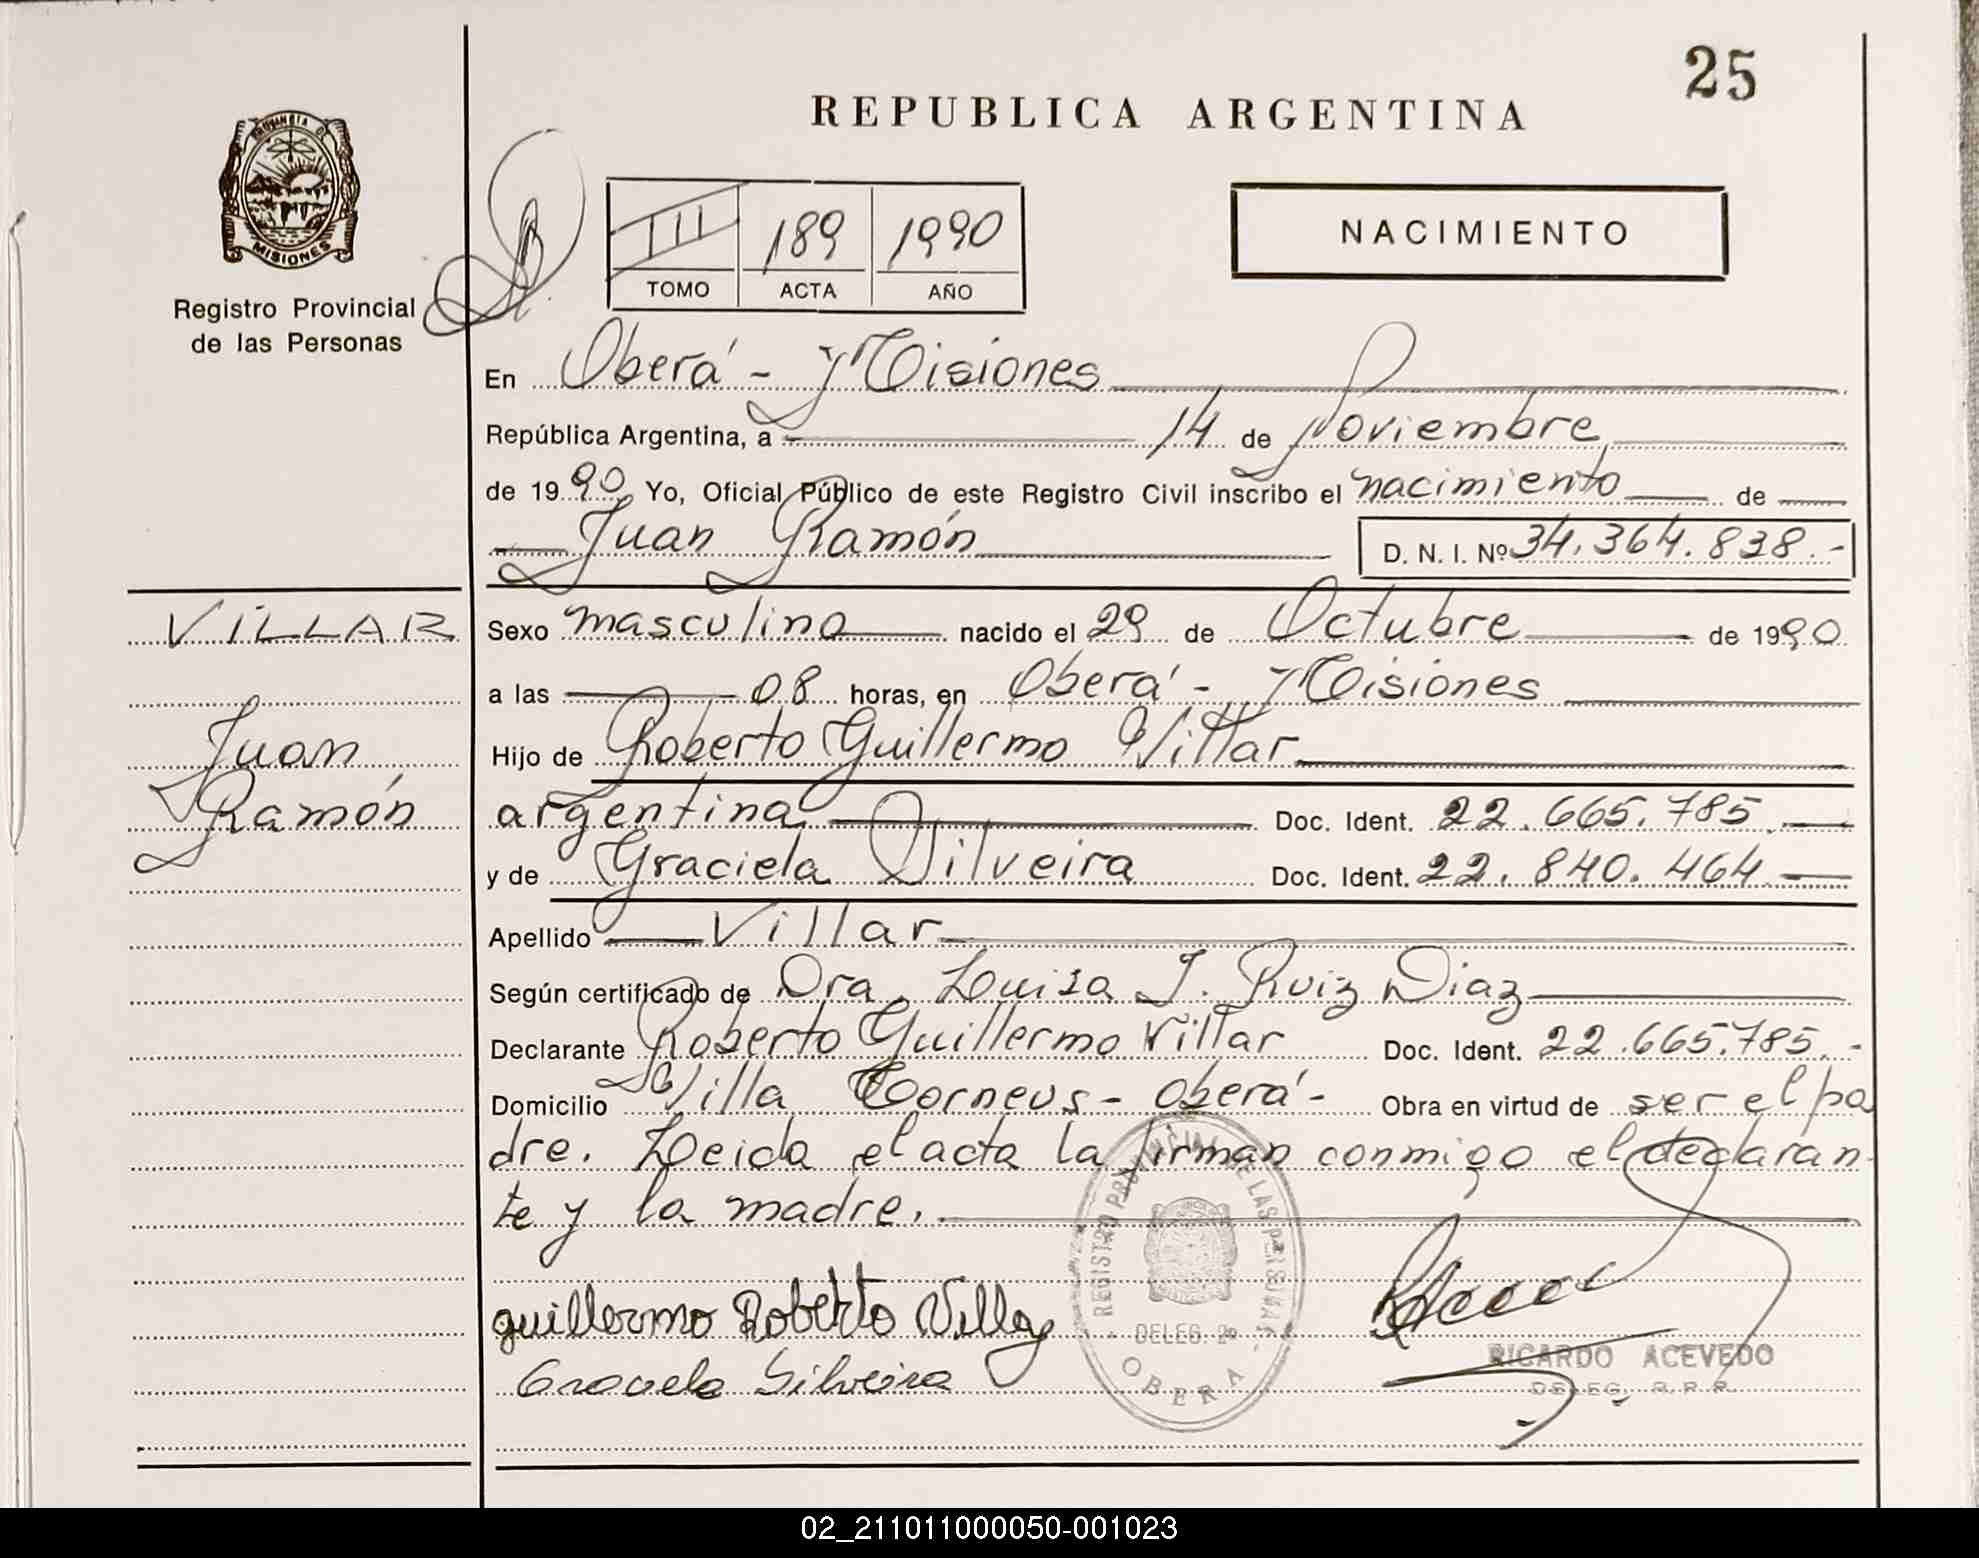 25
REPUBLICA ARGENTINA
PROVINCIA DE
MISIONES
Registro Provincial
de las Personas
III 189 1990
TOMO ACTA AÑO
NACIMIENTO
En Oberá - Misiones
República Argentina, a 14 de Noviembre
de 1990 Yo, Oficial Público de este Registro Civil inscribo el nacimiento de
Juan Ramón D. N. I. Nº 34.364.838.-
VILLAR
Juan
Ramón
Sexo masculino nacido el 29 de Octubre de 1990
a las 08 horas, en Oberá - Misiones
Hijo de Roberto Guillermo Villar
argentina Doc. Ident. 22.665.785.
y de Graciela Silveira Doc. Ident. 22.840.464
Apellido Villar
Según certificado de Dra. Luisa J. Ruiz Diaz
Declarante Roberto Guillermo Villar Doc. Ident. 22.665.785.-
Domicilio Villa Torneus - Oberá - Obra en virtud de ser el pa
dre. Leida el acta la firman conmigo el declaran
te y la madre.
REGISTRO PROVINCIAL DE LAS PERSONAS
DELEG. 2º
OBERA
guillermo Roberto Villar
Graciela Silveira
RICARDO ACEVEDO
DELEG. R.P.P.
02_211011000050-001023